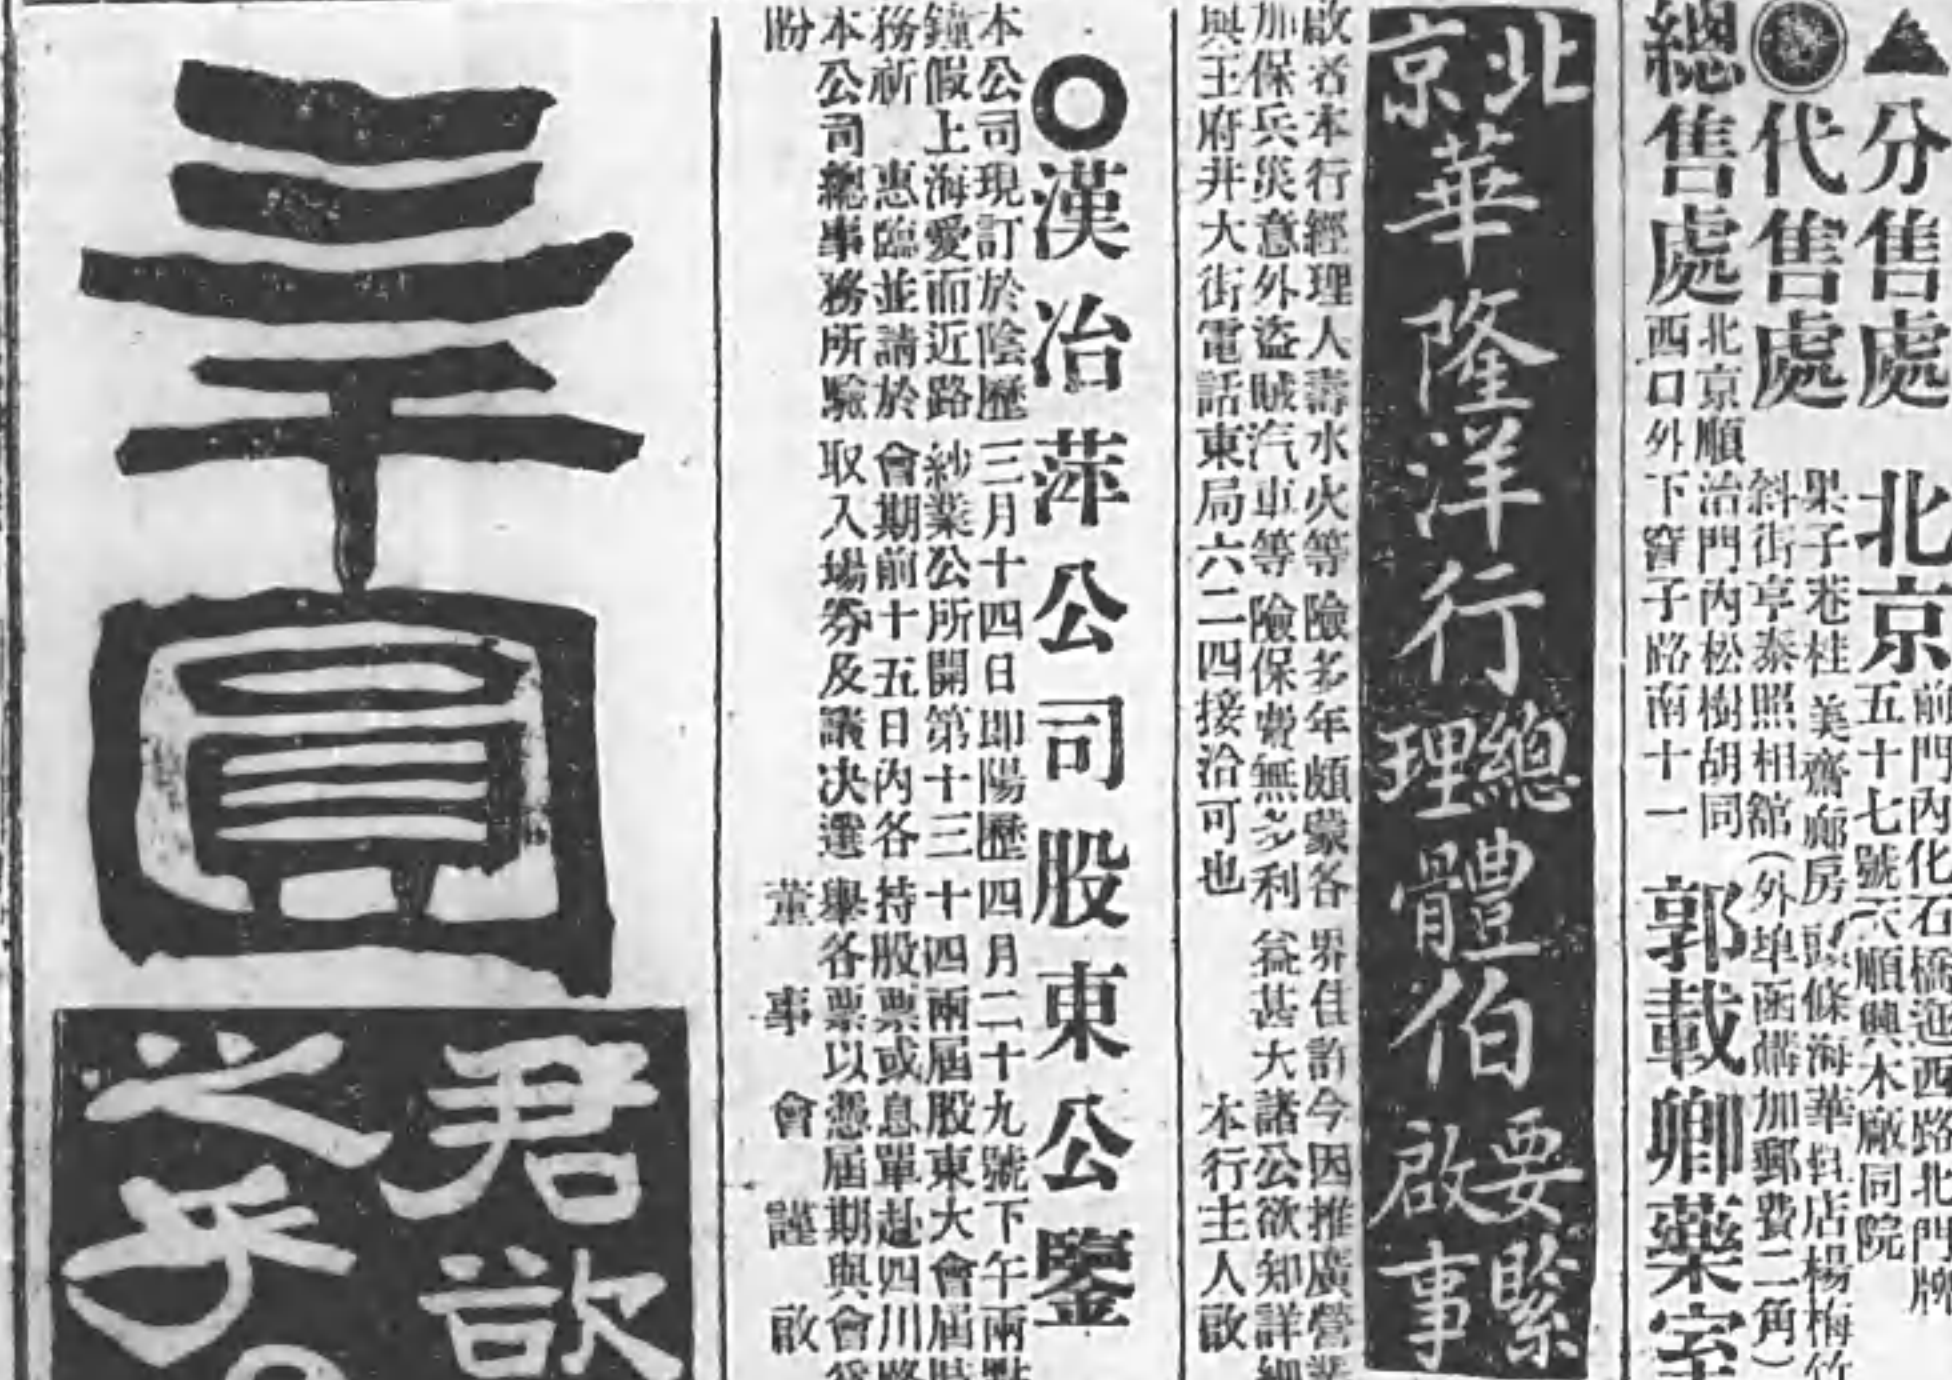 ▲分售處 北京
前門內化石橋迤西路北門牌
五十七號天順興木廠同院
代售處
果子巷桂美齋廊房頭條海華料店楊梅竹
斜街亨泰照相館（外埠函購加郵費二角）
總售處
北京順治門內松樹胡同
西口外下窪子路南十一
郭載卿藥室
北京華隆洋行總理體伯要緊啟事
啟者本行經理人壽水火等險多年頗蒙各界佳許今因推廣營業
加保兵災意外盜賊汽車等險保費無多利益甚大諸公欲知詳細
與王府井大街電話東局六二四接洽可也
本行主人啟
漢冶萍公司股東公鑒
本公司現訂於陰歷三月十四日即陽歷四月二十九號下午兩點
鐘假上海愛而近路紗業公所開第十三十四兩屆股東大會屆時
務祈 惠臨並請於會期前十五日內各持股票或息單赴四川路
本公司總事務所驗取入場券及議決選舉各票以憑屆期與會
董事會謹啟
三千圓
君欲
之乎